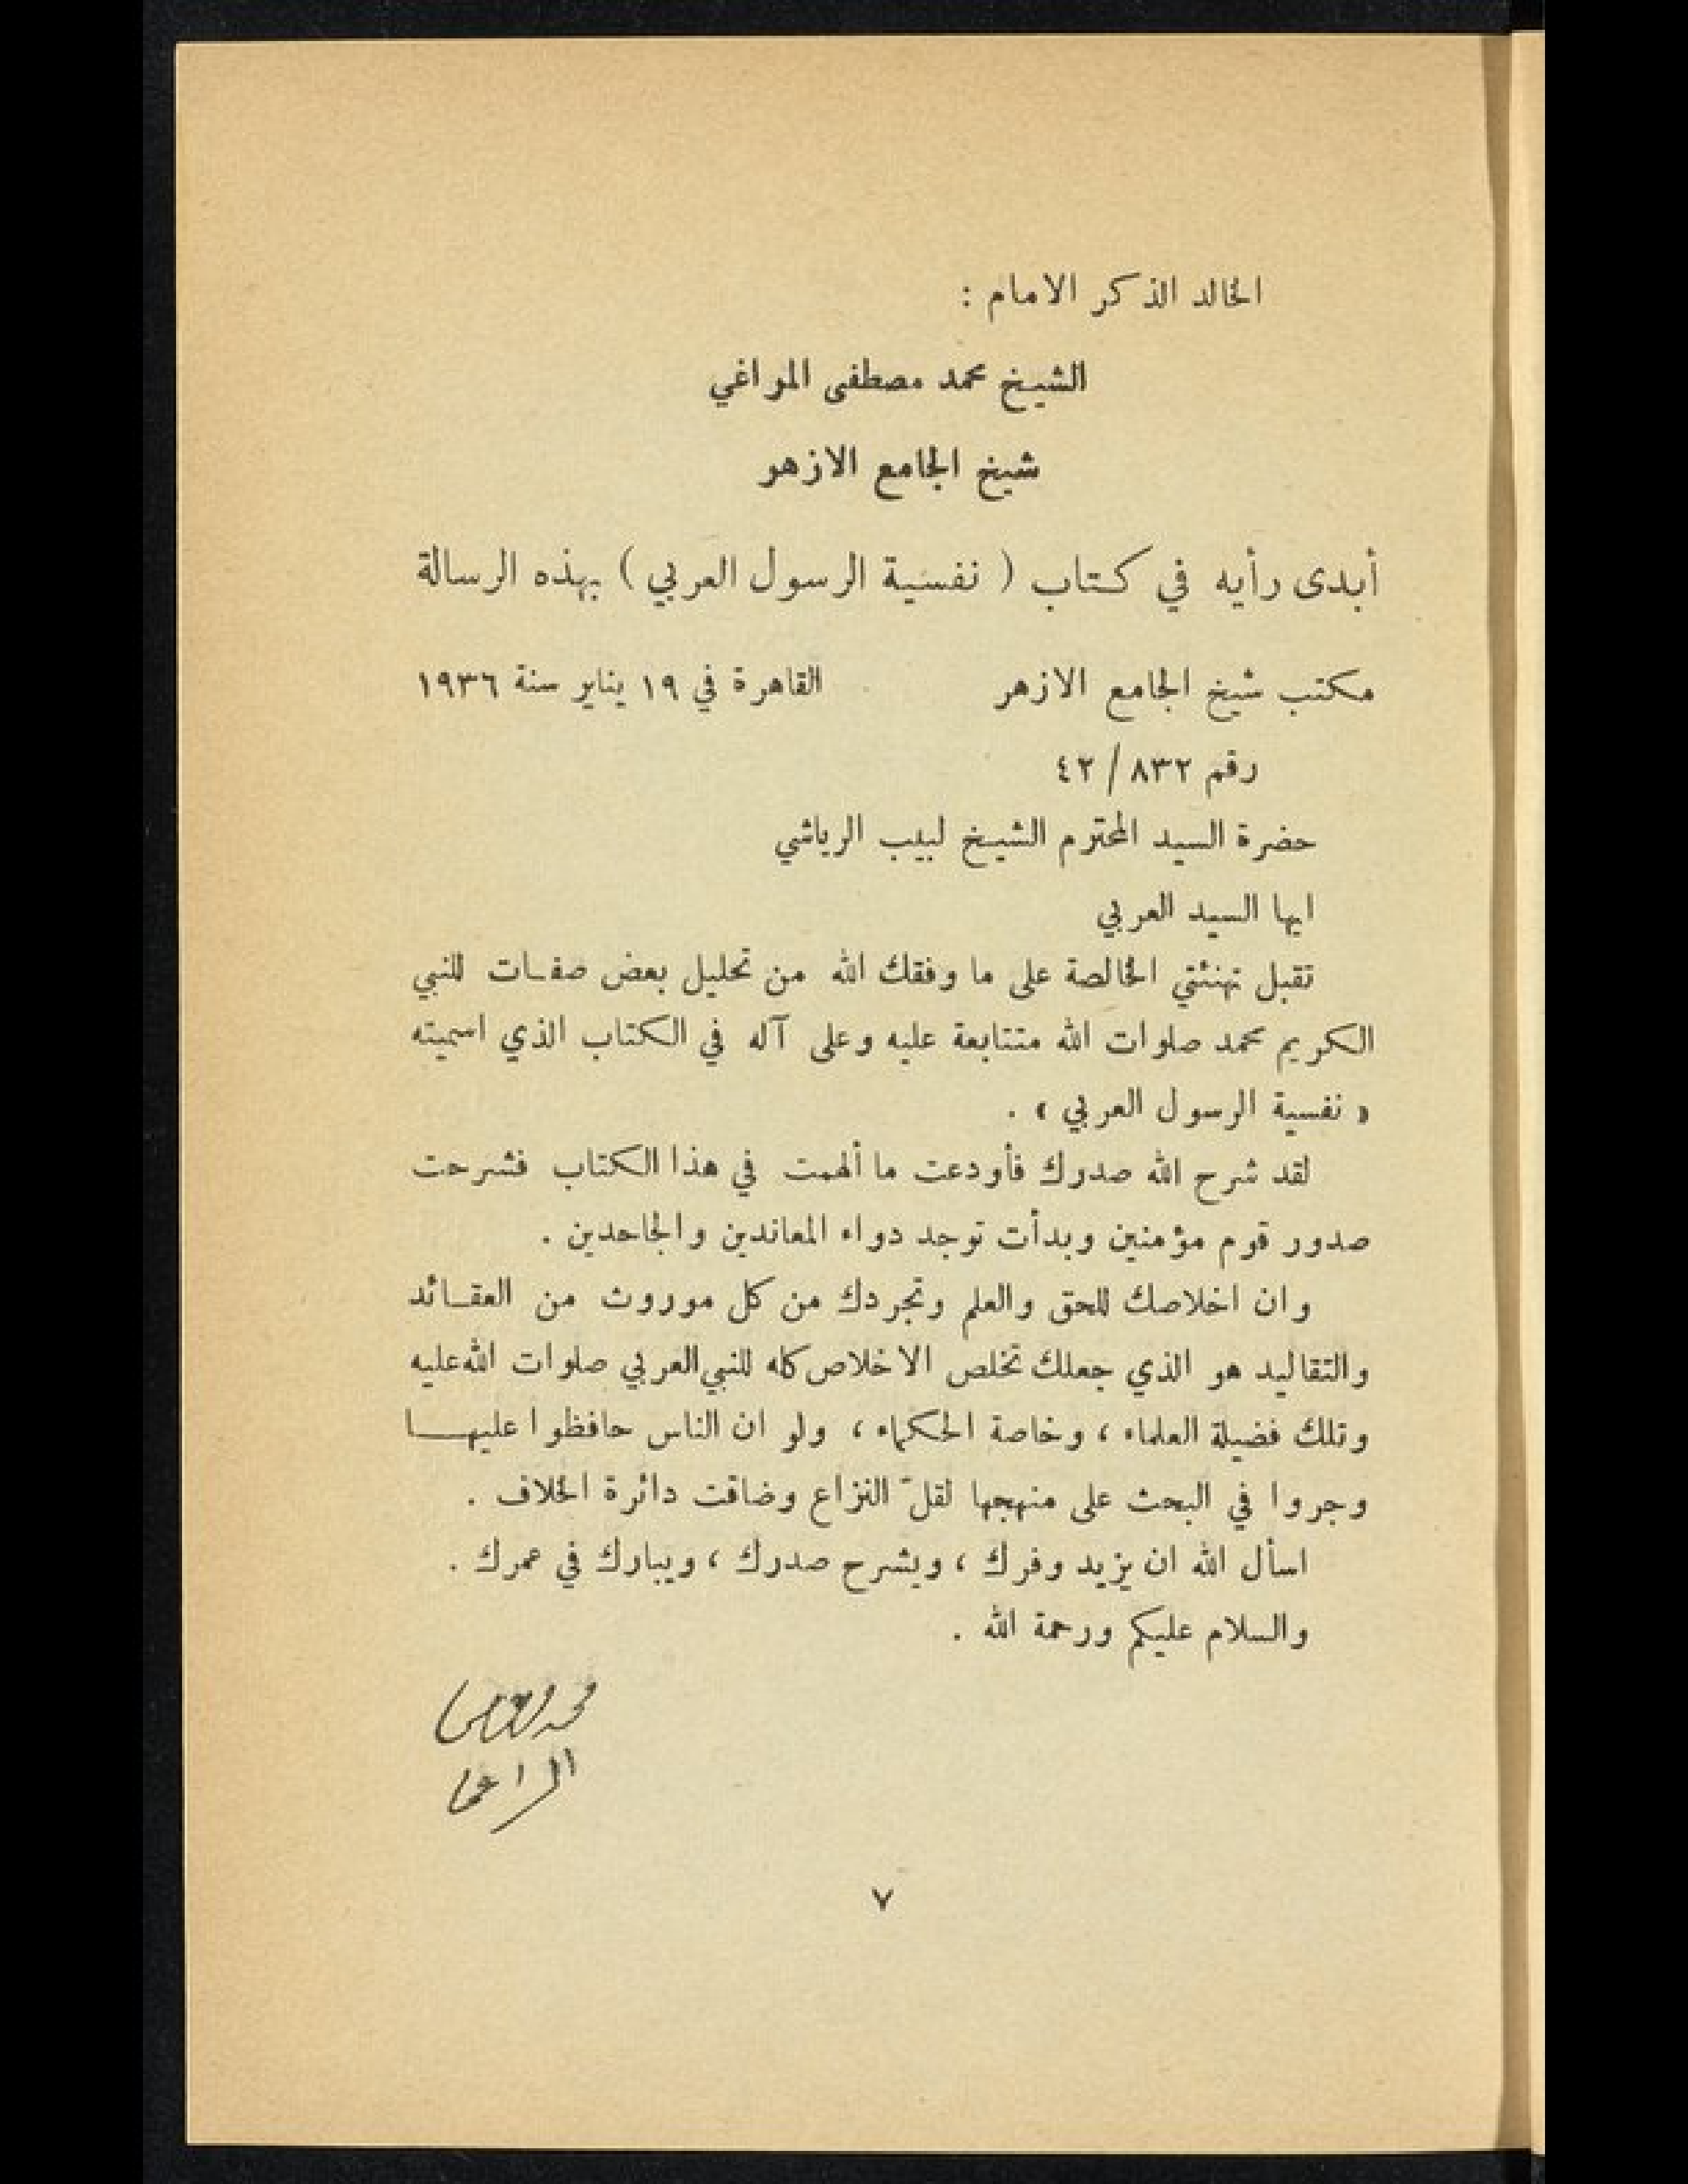 الخالد الذكر الامام :
الشيخ محمد مصطفى المراغي
شيخ الجامع الازهر
أبدى رأيه في كتاب ( نفسية الرسول العربي ) بهذه الرسالة
مكتب شيخ الجامع الازهر القاهرة في ١٩ يناير سنة ١٩٣٦
رقم ٨٣٢ / ٤٢
حضرة السيد المحترم الشيخ لبيب الرياشي
ايها السيد العربي
تقبل تهنئتي الخالصة على ما وفقك الله من تحليل بعض صفات للنبي
الكريم محمد صلوات الله متتابعة عليه وعلى آله في الكتاب الذي اسميته
« نفسية الرسول العربي » .
لقد شرح الله صدرك فأودعت ما ألهمت في هذا الكتاب فشرحت
صدور قوم مؤمنين وبدأت توجد دواء المعاندين والجاحدين .
وان اخلاصك للحق والعلم وتجردك من كل موروث من العقائد
والتقاليد هو الذي جعلك تخلص الاخلاص كله للنبي العربي صلوات الله عليه
وتلك فضيلة العلماء ، وخاصة الحكماء ، ولو ان الناس حافظوا عليها
وجروا في البحث على منهجها لقلّ النزاع وضاقت دائرة الخلاف .
اسأل الله ان يزيد وفرك ، ويشرح صدرك ، ويبارك في عمرك .
والسلام عليكم ورحمة الله .
محمد مصطفى
المراغي
٧